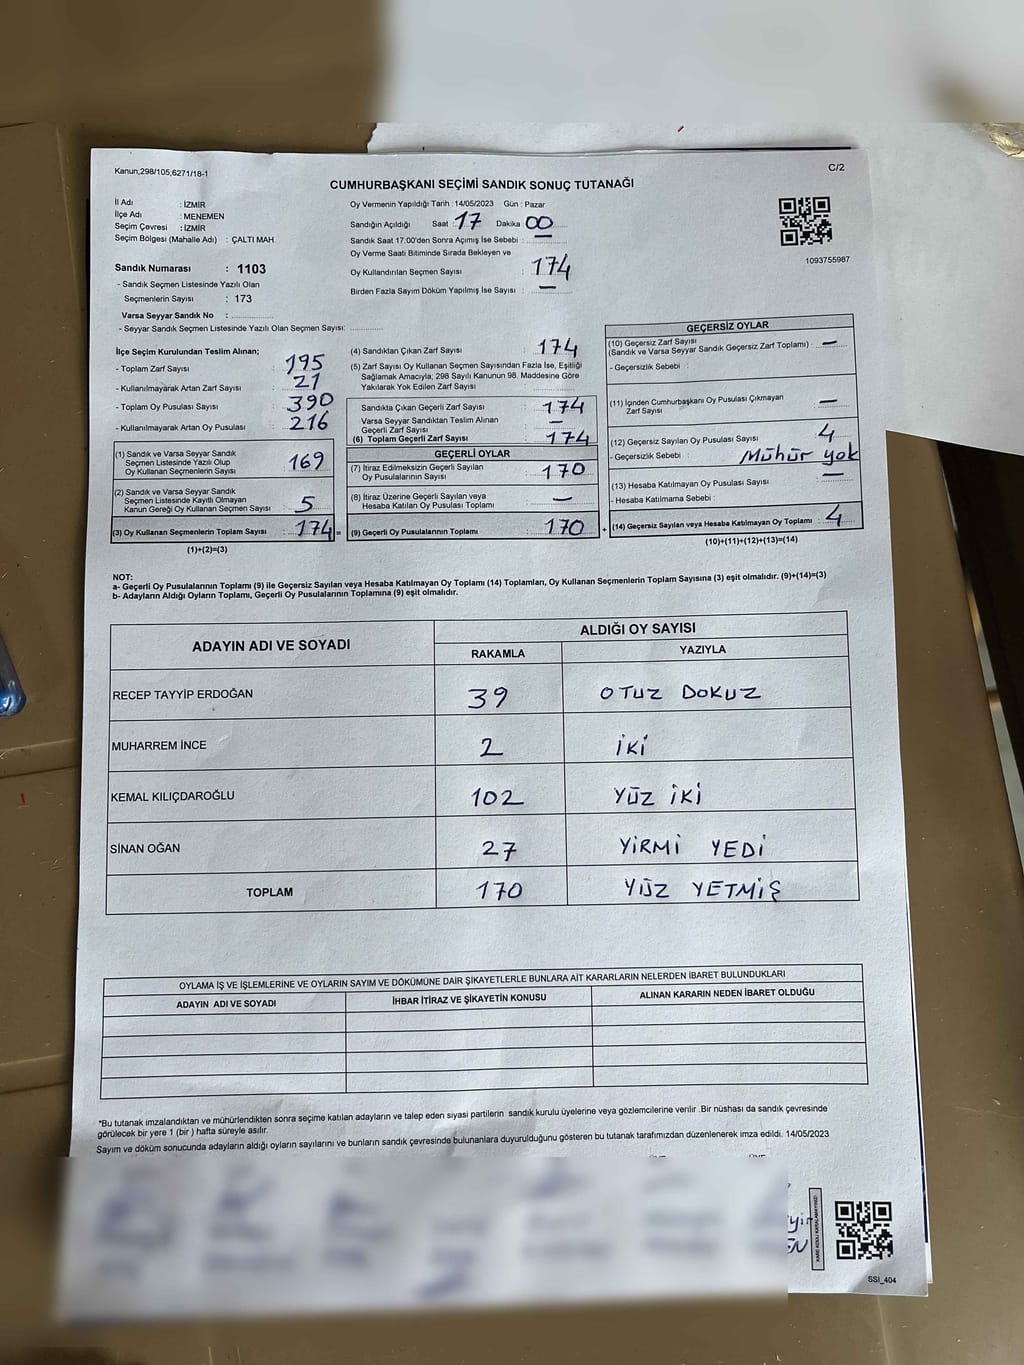 Kanun,298/105,6271/18-1
C/2
CUMHURBAŞKANI SEÇİMİ SANDIK SONUÇ TUTANAĞI
İl Adı : İZMİR
İlçe Adı : MENEMEN
Seçim Çevresi : İZMİR
Seçim Bölgesi (Mahalle Adı) : ÇALTI MAH.
Sandık Numarası : 1103
- Sandık Seçmen Listesinde Yazılı Olan
Seçmenlerin Sayısı : 173
Varsa Seyyar Sandık No :
- Seyyar Sandık Seçmen Listesinde Yazılı Olan Seçmen Sayısı:
Oy Vermenin Yapıldığı Tarih :14/05/2023 Gün : Pazar
Sandığın Açıldığı Saat : 17 Dakika : 00
Sandık Saat 17.00'den Sonra Açımış İse Sebebi : —
Oy Verme Saati Bitiminde Sırada Bekleyen ve
Oy Kullandırılan Seçmen Sayısı : 174
Birden Fazla Sayım Döküm Yapılmış İse Sayısı : —
1093755987
İlçe Seçim Kurulundan Teslim Alınan;
- Toplam Zarf Sayısı : 195
- Kullanılmayarak Artan Zarf Sayısı : 21
- Toplam Oy Pusulası Sayısı : 390
- Kullanılmayarak Artan Oy Pusulası : 216
(1) Sandık ve Varsa Seyyar Sandık
Seçmen Listesinde Yazılı Olup
Oy Kullanan Seçmenlerin Sayısı : 169
(2) Sandık ve Varsa Seyyar Sandık
Seçmen Listesinde Kayıtlı Olmayan
Kanun Gereği Oy Kullanan Seçmen Sayısı : 5
(3) Oy Kullanan Seçmenlerin Toplam Sayısı : 174 =
(1)+(2)=(3)
(4) Sandıktan Çıkan Zarf Sayısı : 174
(5) Zarf Sayısı Oy Kullanan Seçmen Sayısından Fazla İse, Eşitliği
Sağlamak Amacıyla; 298 Sayılı Kanunun 98. Maddesine Göre
Yakılarak Yok Edilen Zarf Sayısı :
Sandıkta Çıkan Geçerli Zarf Sayısı : 174
Varsa Seyyar Sandıktan Teslim Alınan
Geçerli Zarf Sayısı : —
(6) Toplam Geçerli Zarf Sayısı : 174
GEÇERLİ OYLAR
(7) İtiraz Edilmeksizin Geçerli Sayılan
Oy Pusulalarının Sayısı : 170
(8) İtiraz Üzerine Geçerli Sayılan veya
Hesaba Katılan Oy Pusulası Toplamı : —
(9) Geçerli Oy Pusulalarının Toplamı : 170 +
GEÇERSİZ OYLAR
(10) Geçersiz Zarf Sayısı
(Sandık ve Varsa Seyyar Sandık Geçersiz Zarf Toplamı) : —
- Geçersizlik Sebebi :
(11) İçinden Cumhurbaşkanı Oy Pusulası Çıkmayan
Zarf Sayısı : —
(12) Geçersiz Sayılan Oy Pusulası Sayısı : 4
- Geçersizlik Sebebi : Mühür yok
(13) Hesaba Katılmayan Oy Pusulası Sayısı : —
- Hesaba Katılmama Sebebi :
(14) Geçersiz Sayılan veya Hesaba Katılmayan Oy Toplamı : 4
(10)+(11)+(12)+(13)=(14)
NOT:
a- Geçerli Oy Pusulalarının Toplamı (9) ile Geçersiz Sayılan veya Hesaba Katılmayan Oy Toplamı (14) Toplamları, Oy Kullanan Seçmenlerin Toplam Sayısına (3) eşit olmalıdır. (9)+(14)=(3)
b- Adayların Aldığı Oyların Toplamı, Geçerli Oy Pusulalarının Toplamına (9) eşit olmalıdır.
ADAYIN ADI VE SOYADI ALDIĞI OY SAYISI
RAKAMLA YAZIYLA
RECEP TAYYİP ERDOĞAN 39 OTUZ DOKUZ
MUHARREM İNCE 2 İKİ
KEMAL KILIÇDAROĞLU 102 YÜZ İKİ
SİNAN OĞAN 27 YİRMİ YEDİ
TOPLAM 170 YÜZ YETMİŞ
OYLAMA İŞ VE İŞLEMLERİNE VE OYLARIN SAYIM VE DÖKÜMÜNE DAİR ŞİKAYETLERLE BUNLARA AİT KARARLARIN NELERDEN İBARET BULUNDUKLARI
ADAYIN ADI VE SOYADI İHBAR İTİRAZ VE ŞİKAYETİN KONUSU ALINAN KARARIN NEDEN İBARET OLDUĞU
*Bu tutanak imzalandıktan ve mühürlendikten sonra seçime katılan adayların ve talep eden siyasi partilerin sandık kurulu üyelerine veya gözlemcilerine verilir .Bir nüshası da sandık çevresinde
görülecek bir yere 1 (bir ) hafta süreyle asılır.
Sayım ve döküm sonucunda adayların aldığı oyların sayılarını ve bunların sandık çevresinde bulunanlara duyurulduğunu gösteren bu tutanak tarafımızdan düzenlenerek imza edildi. 14/05/2023
SSI_404